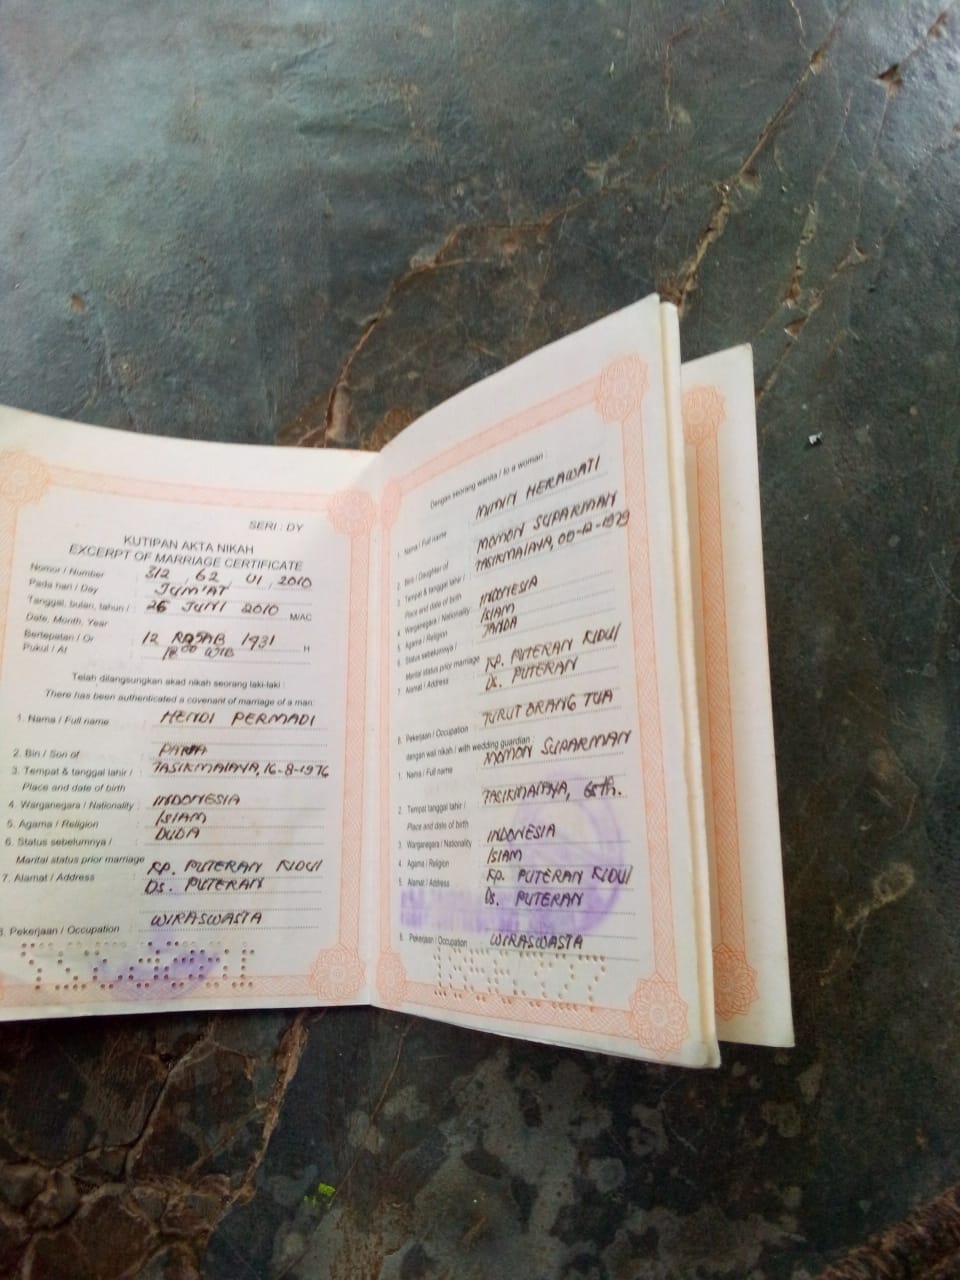 SERI : DY
KUTIPAN AKTA NIKAH
EXCERPT OF MARRIAGE CERTIFICATE
Nomor / Number 312 , 62 , VI , 2010
Pada hari / Day JUM'AT
Tanggal, bulan, tahun / : 26 JUNI 2010 M/AC
Date, Month, Year
Bertepatan / Or 12 RAJAB 1431 H
Pukul / At 18 00 WIB
Telah dilangsungkan akad nikah seorang laki-laki :
There has been authenticated a covenant of marriage of a man:
1. Nama / Full name : HENDI PERMADI
2. Bin / Son of :
3. Tempat & tanggal lahir / : TASIKMALAYA, 16-8-1976
Place and date of birth
4. Warganegara / Nationality : INDONESIA
5. Agama / Religion : ISLAM
6. Status sebelumnya / : DUDA
Marital status prior marriage
7. Alamat / Address : KP. PUTERAN KIDUL
DS. PUTERAN
8. Pekerjaan / Occupation : WIRASWASTA
Dengan seorang wanita / to a woman :
1. Nama / Full name MIMIN HERAWATI
2. Binti / Daughter of MOMON SUPARMAN
3. Tempat & tanggal lahir / TASIKMALAYA,
Place and date of birth
4. Warganegara / Nationality : INDONESIA
5. Agama / Religion ISLAM
6. Status sebelumnya / JANDA
Marital status prior marriage
7. Alamat / Address KP. PUTERAN KIDUL
DS. PUTERAN
8. Pekerjaan / Occupation : TURUT ORANG TUA
dengan wali nikah / with wedding guardian :
1. Nama / Full name MOMON SUPARMAN
2. Tempat tanggal lahir / TASIKMALAYA,
Place and date of birth
3. Warganegara / Nationality INDONESIA
4. Agama / Religion ISLAM
5. Alamat / Address KP. PUTERAN KIDUL
DS. PUTERAN
6. Pekerjaan / Occupation WIRASWASTA